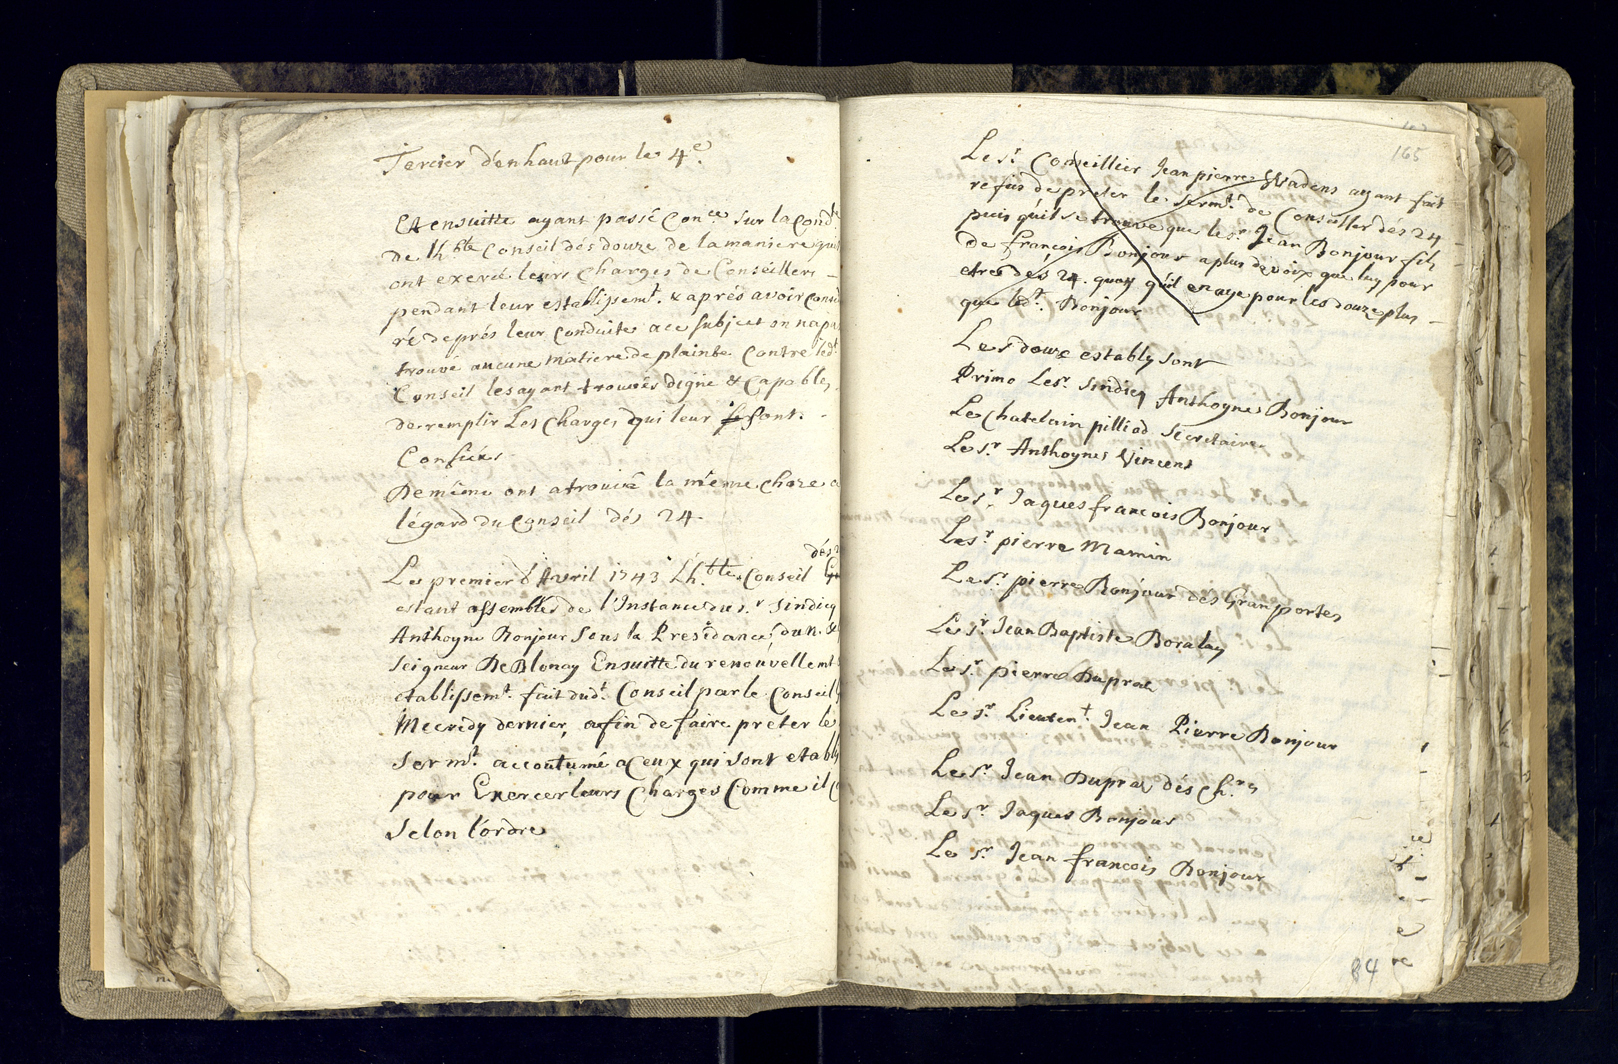 Tercier d'enhaut pour le 4e.
Et ensuitte ayant passé Conce sur la Condte
de lhble Conseil dés douze de la maniere quil
ont exercé leurs Charges de Conseillers –
pendant leur establissemt. & aprés avoir Consi
ré deprés leur Conduitte ace subject on na pas
trouvé aucune matiere de plainte Contre ledt
Conseil les ayant trouvés digne & Capables,
de remplir Les Charges qui leur sont.
Confiées
De même ont a trouvé la même chose a
légard du Conseil dés 24.
dés
Le premier d'Avril 1743 Lh.ble Conseil
estant assemblés de l'Instance du sr Sindicq
Anthoyne Bonjour sous la Presidance du N. &
Seigneur De Blonay Ensuitte du renouvellemt
etablissemt. fait dudt. Conseil par le Conseil
Mecredy dernier, afin de faire préter le
Sermt. accoutumé a Ceux qui sont etably
pour Exercer leurs Charges Comme il
Selon l'ordre
165
Le sr. Conseillier Jean pierre Wadens ayant fait
refus de préter le sermt. de Conseiller dés 24 –
puis qu'il se trouve que le sr. Jean Bonjour fils
de françois Bonjour a plus de voix que luy pour
etre dés 24. quoy qu'il en aye pour les douze plus –
que ledt. Bonjour
Les douze estably sont
Primo Le sr. Sindicq Anthoyne Bonjour
Le Chatelain pilliod Secretaire
Le sr. Anthoyne Vincent
Le sr. Jaques francois Bonjour
Le sr. pierre Mamin
Le sr. pierre Bonjour des Gran portes
Le sr. Jean Baptiste Boralay
Le sr. pierre Dupraz
Le sr. Lieutent Jean Pierre Bonjour
Le sr. Jean Dupraz dés Ch.es
Le sr. Jaques Bonjour
Le sr. Jean francois Bonjour
84